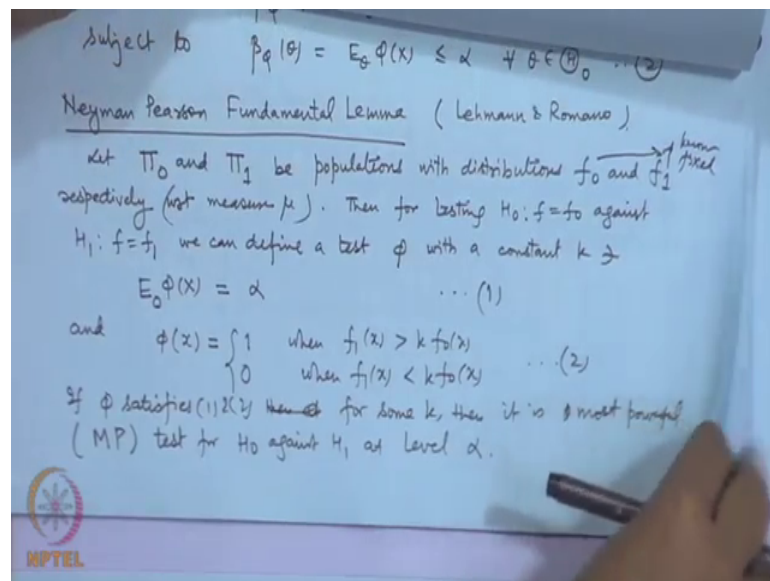 subject to β_φ(θ) = E_θ φ(X) ≤ α ∀ θ ∈ Ⓗ_0 ... (2)
Neyman Pearson Fundamental Lemma (Lehmann & Romano)
Let Π_0 and Π_1 be populations with distributions f_0 and f_1 → known fixed
respectively (wrt measure μ). Then for testing H_0: f=f_0 against
H_1: f=f_1 we can define a test φ with a constant k ∋
E_0 φ(X) = α ... (1)
and φ(x) = { 1 when f_1(x) > k f_0(x)
0 when f_1(x) < k f_0(x) ... (2)
If φ satisfies (1) & (2) for some k, then it is most powerful
(MP) test for H_0 against H_1 at level α.
NPTEL